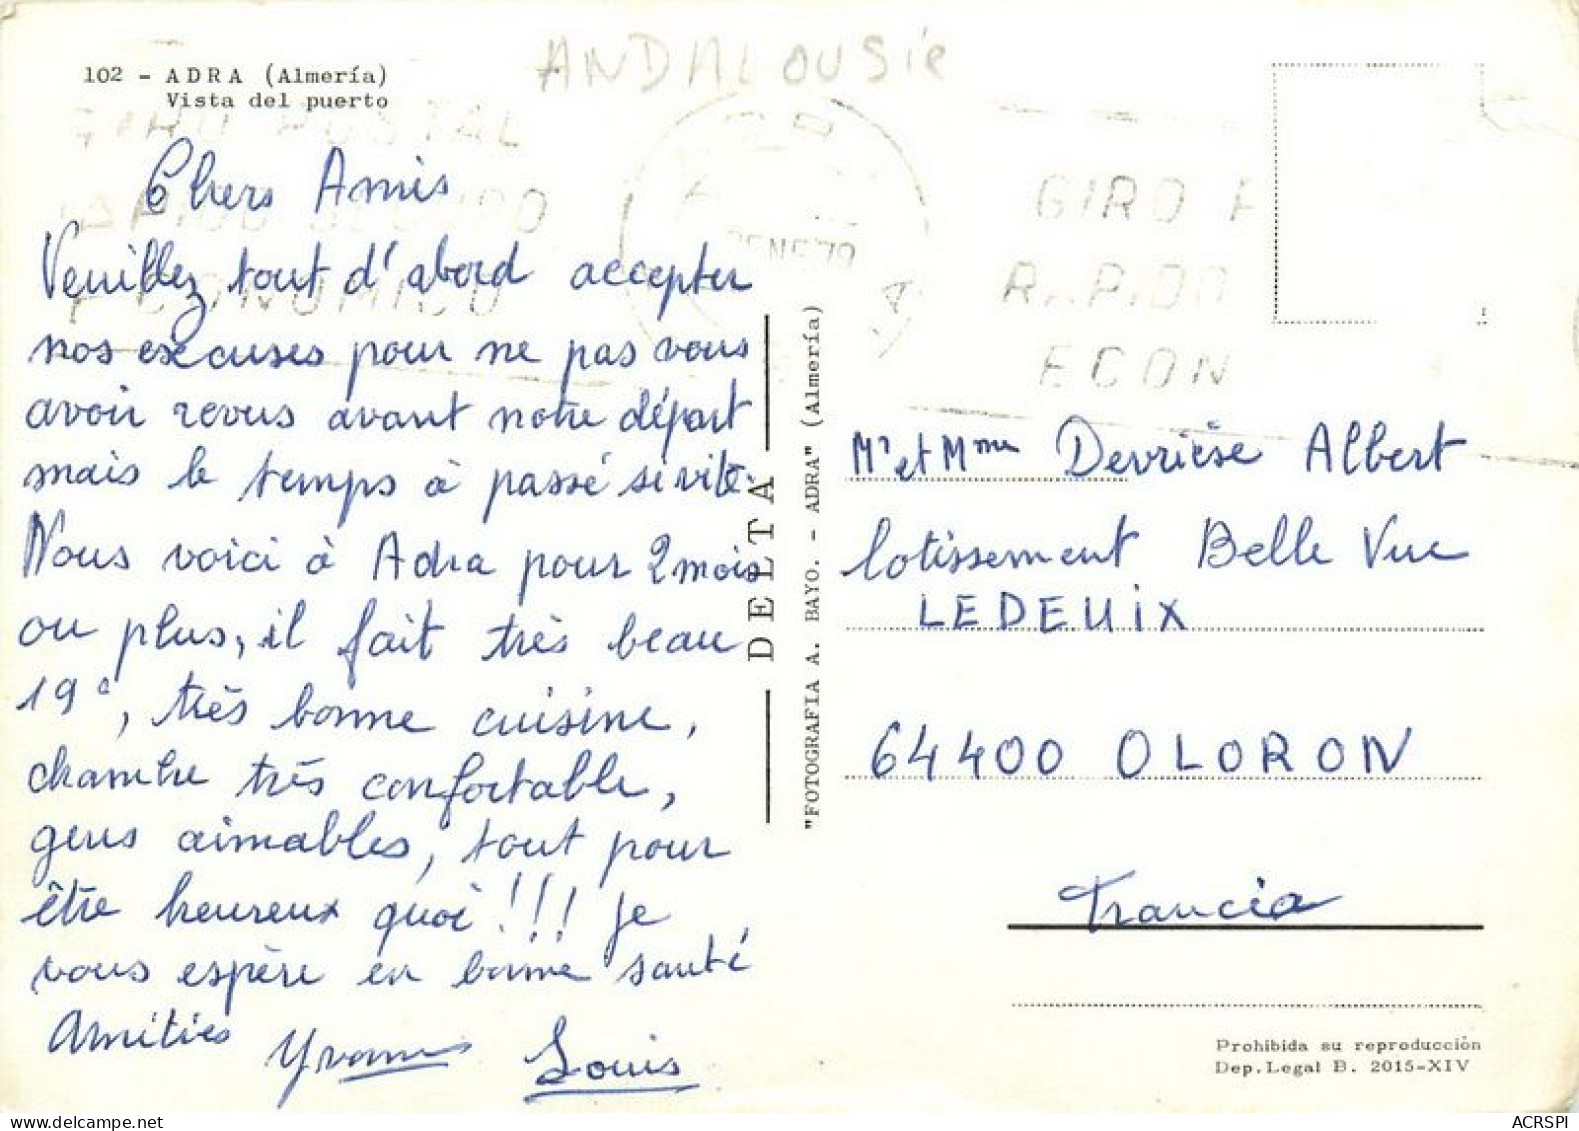 ANDALOUSie
102 - ADRA (Almería)
Vista del puerto
GIRO POSTAL
RAPIDO SEGURO
ECONOMICO
Chers Amis
Veuillez tout d'abord accepter
nos excuses pour ne pas vous
avoir revus avant notre départ
mais le temps à passé si vite.
Nous voici à Adra pour 2 mois
ou plus, il fait très beau
19°, très bonne cuisine,
chambre très confortable,
gens aimables, tout pour
être heureux quoi !!! je
vous espère en bonne santé
Amitiés Yvonne Louis
DELTA
"FOTOGRAFIA A. BAYO. - ADRA" (Almería)
GIRO P
RAPIDO
ECON
Mr et Mme Devrièse Albert
lotissement Belle Vue
LEDEUIX
64400 OLORON
Francia
Prohibida su reproducción
Dep. Legal B. 2015-XIV
ACRSPI